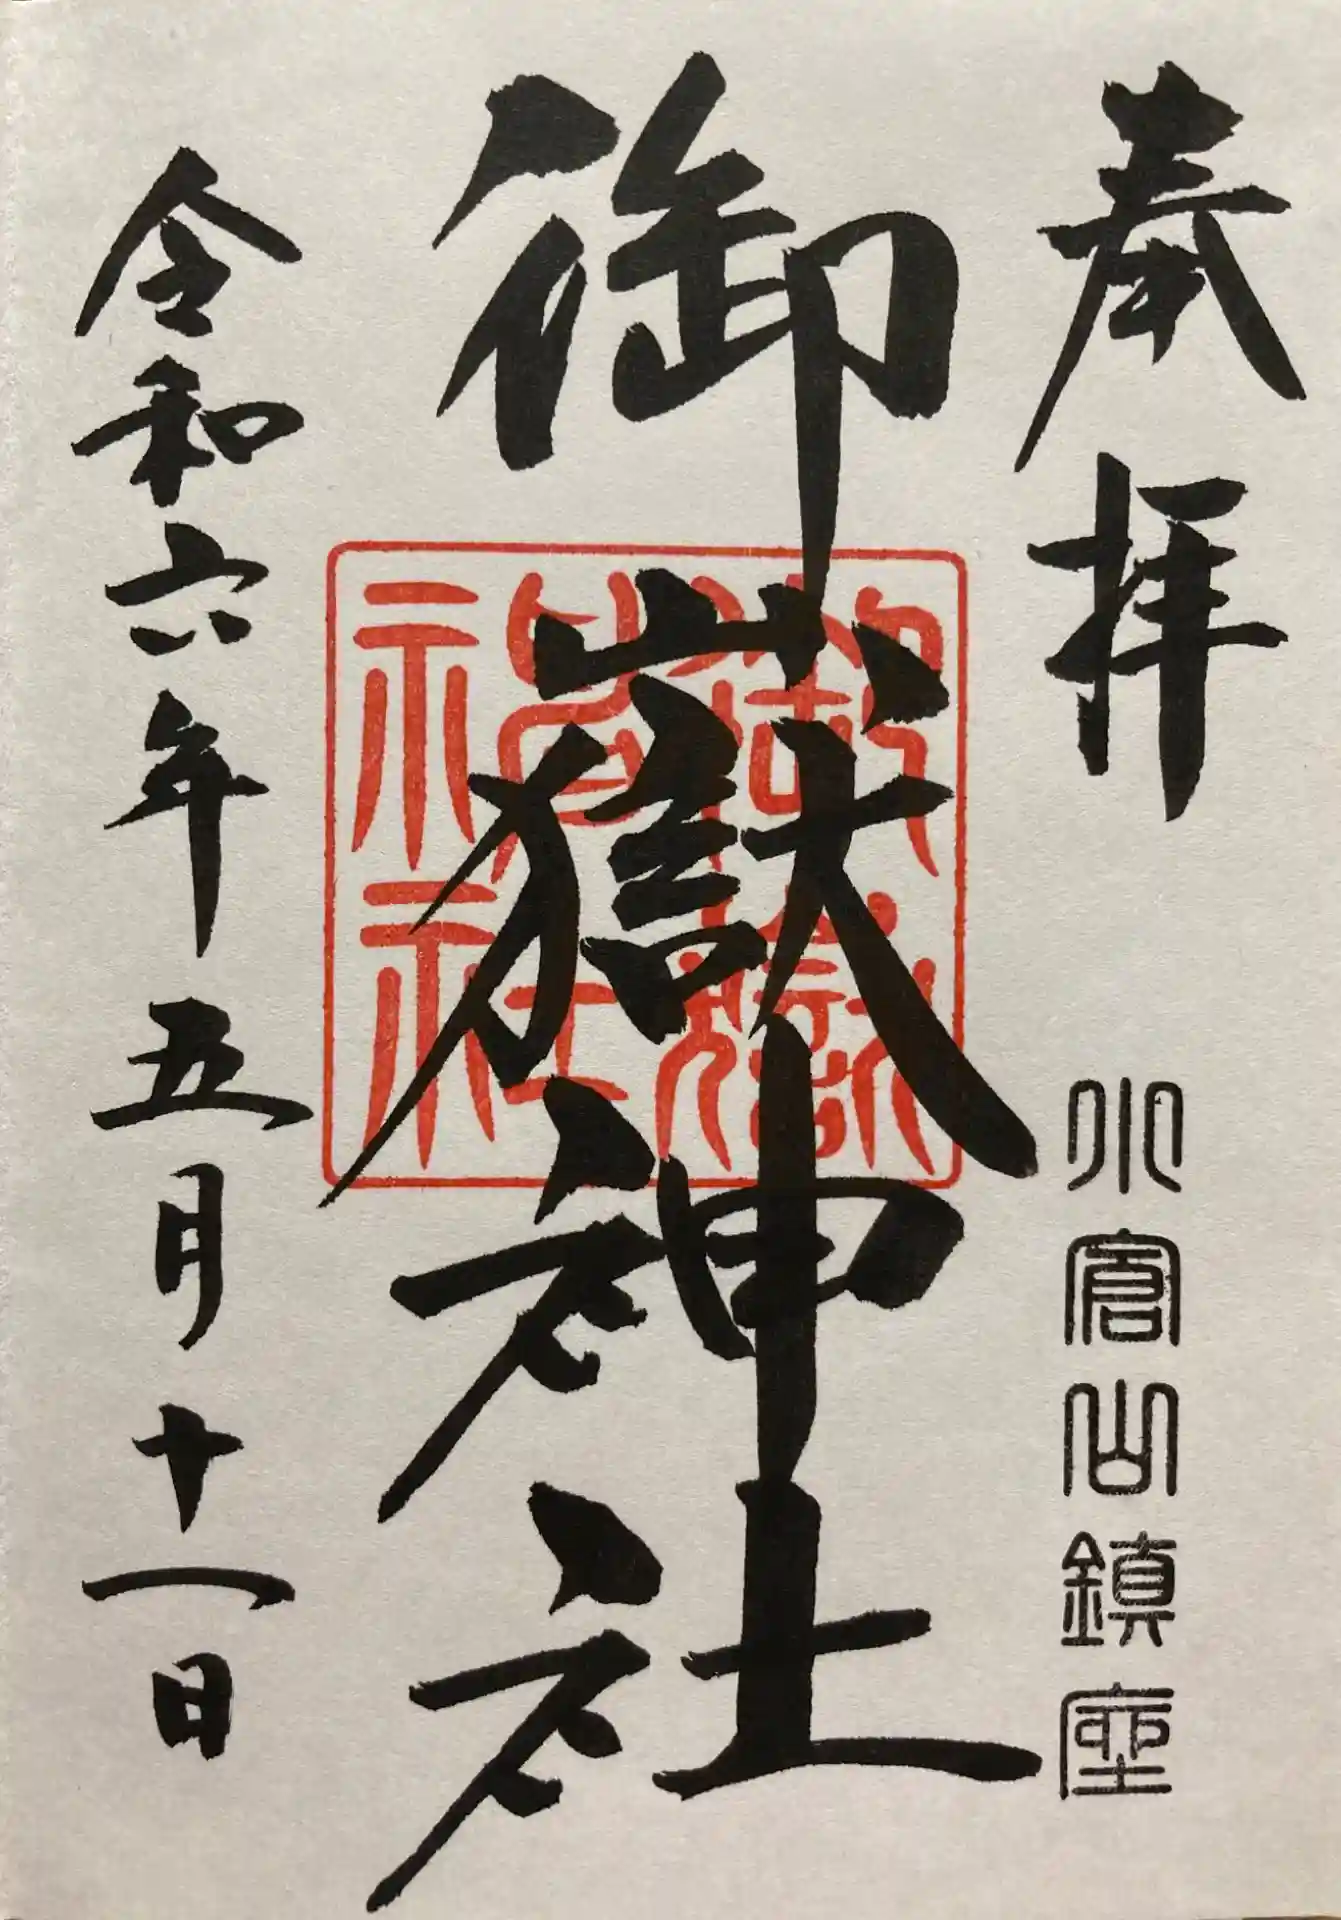 奉拝
小倉山鎮座
御嶽神社
御嶽神社
令和六年五月十一日